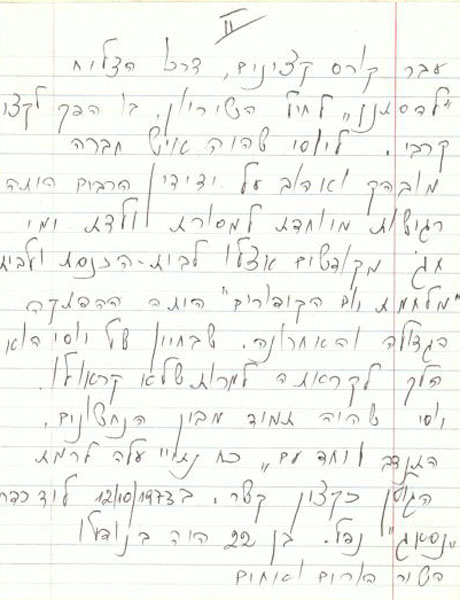 II
עבר קורס קצינים, דרכו הצליח
"להסתנן" לחיל השיריון, בו הפך לקצין
קרבי. ליוסי שהיה איש חברה
מובהק ואהוב על ידידיו הרבים היתה
רגישות מיוחדת למסורת ולדת וימי
חג מקודשים אצלו לבית-הכנסת ולבית
"מלחמת יום הקיפורים" היתה ההפתעה
הגדולה והאחרונה. שבחייו של יוסי הוא
הלך לקראתה למרות שלא קראו לו.
יוסי שהיה תמיד מבין הנחשונים,
התנדב ויחד עם "כח נתי" עלה לרמת
הגולן כקצין קשר. ב 12/10/1973 ליד כפר
"נסאג'" נפל. בן 22 היה בנופלו
השיר הוריו ואחים